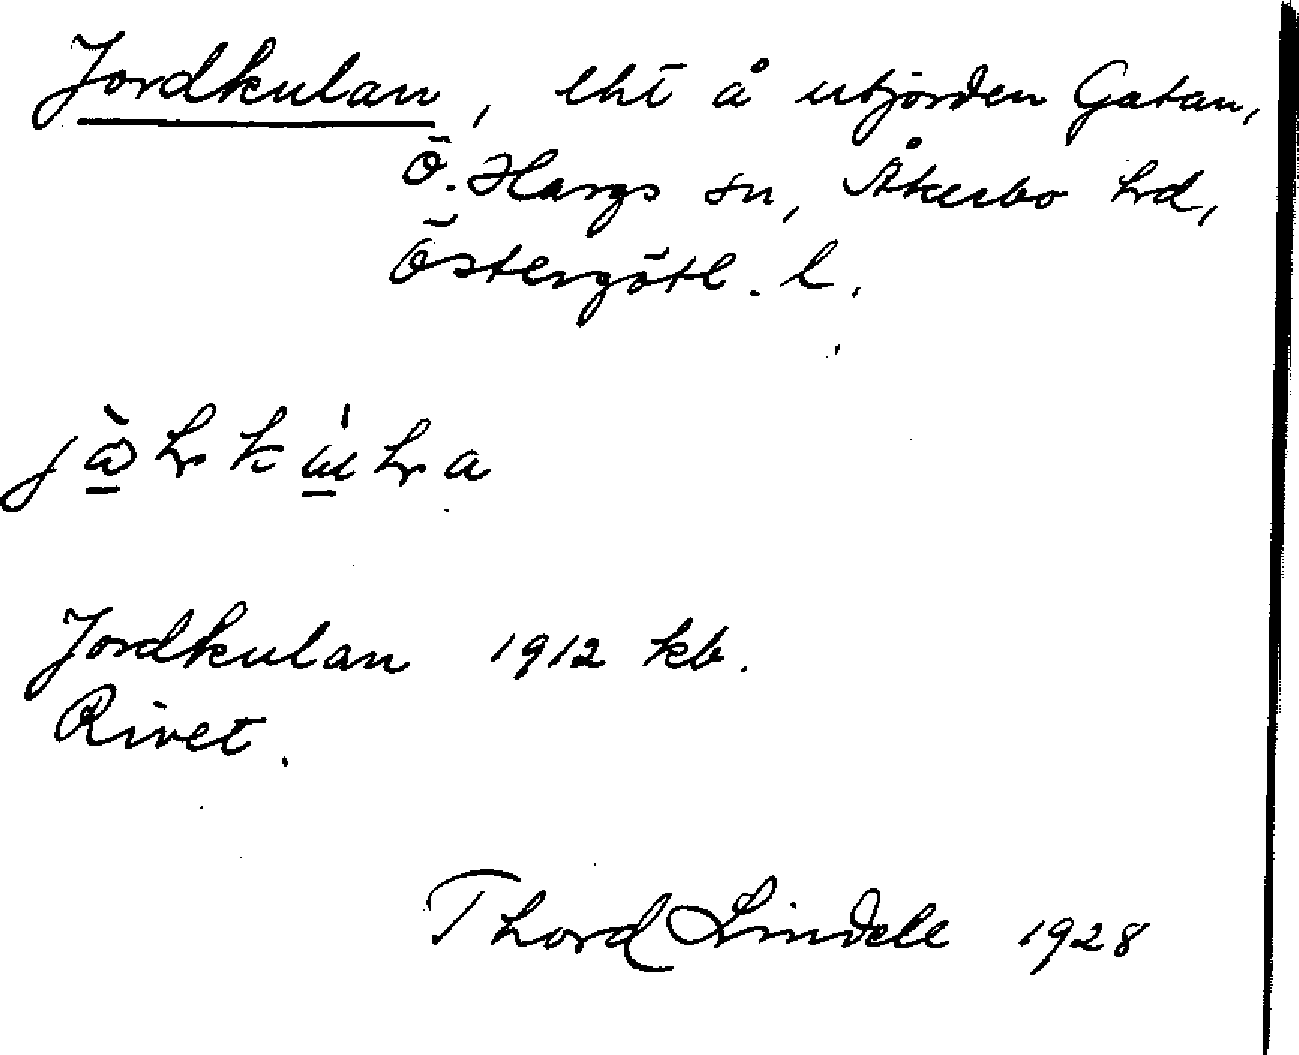 Jordkulan, lht å utjorden Gatan,
Ö. Hargs sn, Åkerbo hd,
Östergötl. l.
Jordkulan 1912 kb.
Rivet.
Thord Lindell 1928